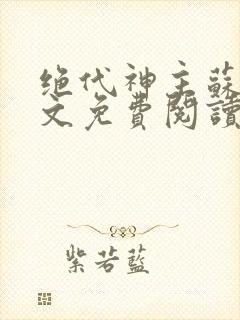 绝代神主蘇
文免費閱讀
紫若藍